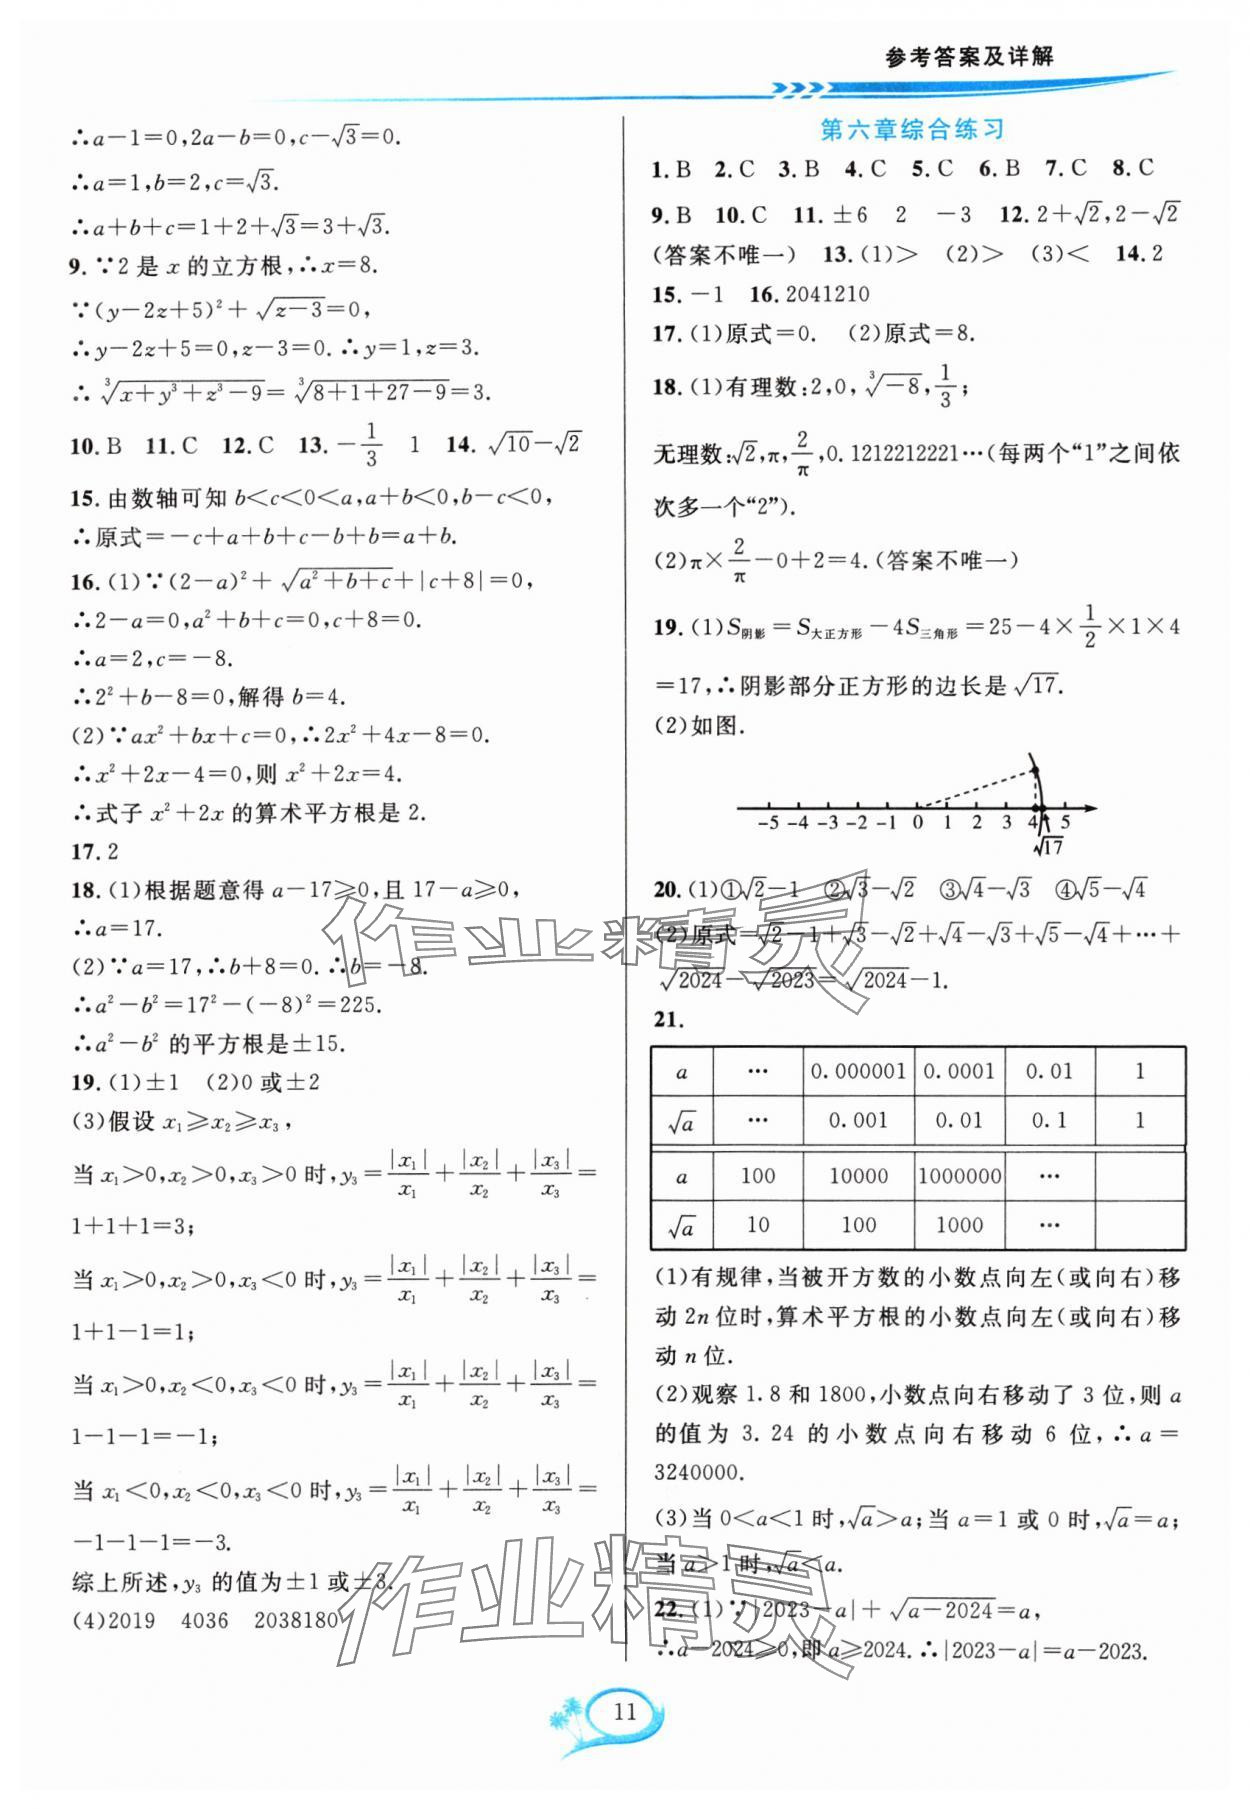 参考答案及详解
∴a-1=0,2a-b=0,c-√3=0.
∴a=1,b=2,c=√3.
∴a+b+c=1+2+√3=3+√3.
9.∵2 是 x 的立方根,∴x=8.
∵(y-2z+5)²+√(z-3)=0,
∴y-2z+5=0,z-3=0.∴y=1,z=3.
∴∛(x+y³+z³-9)=∛(8+1+27-9)=3.
10.B 11.C 12.C 13.-1/3 1 14.√10-√2
15.由数轴可知 b<c<0<a,a+b<0,b-c<0,
∴原式=-c+a+b+c-b+b=a+b.
16.(1)∵(2-a)²+√(a²+b+c)+|c+8|=0,
∴2-a=0,a²+b+c=0,c+8=0.
∴a=2,c=-8.
∴2²+b-8=0,解得 b=4.
(2)∵ax²+bx+c=0,∴2x²+4x-8=0.
∴x²+2x-4=0,则 x²+2x=4.
∴式子 x²+2x 的算术平方根是 2.
17.2
18.(1)根据题意得 a-17⩾0,且 17-a⩾0,
∴a=17.
(2)∵a=17,∴b+8=0.∴b=-8.
∴a²-b²=17²-(-8)²=225.
∴a²-b² 的平方根是±15.
19.(1)±1 (2)0 或±2
(3)假设 x₁⩾x₂⩾x₃,
当 x₁>0,x₂>0,x₃>0 时,y₃=|x₁|/x₁+|x₂|/x₂+|x₃|/x₃=
1+1+1=3;
当 x₁>0,x₂>0,x₃<0 时,y₃=|x₁|/x₁+|x₂|/x₂+|x₃|/x₃=
1+1-1=1;
当 x₁>0,x₂<0,x₃<0 时,y₃=|x₁|/x₁+|x₂|/x₂+|x₃|/x₃=
1-1-1=-1;
当 x₁<0,x₂<0,x₃<0 时,y₃=|x₁|/x₁+|x₂|/x₂+|x₃|/x₃=
-1-1-1=-3.
综上所述,y₃ 的值为±1 或±3.
(4)2019 4036 2038180
第六章综合练习
1.B 2.C 3.B 4.C 5.C 6.B 7.C 8.C
9.B 10.C 11.±6 2 -3 12.2+√2,2-√2
(答案不唯一) 13.(1)> (2)> (3)< 14.2
15.-1 16.2041210
17.(1)原式=0. (2)原式=8.
18.(1)有理数:2,0,∛-8,1/3;
无理数:√2,π,2/π,0.1212212221…(每两个“1”之间依
次多一个“2”).
(2)π×2/π-0+2=4.(答案不唯一)
19.(1)S阴影=S大正方形-4S三角形=25-4×1/2×1×4
=17,∴阴影部分正方形的边长是√17.
(2)如图.
-5 -4 -3 -2 -1 0 1 2 3 4 5
√17
20.(1)①√2-1 ②√3-√2 ③√4-√3 ④√5-√4
(2)原式=√2-1+√3-√2+√4-√3+√5-√4+…+
√2024-√2023=√2024-1.
21.
a … 0.000001 0.0001 0.01 1
√a … 0.001 0.01 0.1 1
a 100 10000 1000000 …
√a 10 100 1000 …
(1)有规律,当被开方数的小数点向左(或向右)移
动 2n 位时,算术平方根的小数点向左(或向右)移
动 n 位.
(2)观察 1.8 和 1800,小数点向右移动了 3 位,则 a
的值为 3.24 的小数点向右移动 6 位,∴a=
3240000.
(3)当 0<a<1 时,√a>a;当 a=1 或 0 时,√a=a;
当 a>1 时,√a<a.
22.(1)∵|2023-a|+√(a-2024)=a,
∴a-2024⩾0,即 a⩾2024.∴|2023-a|=a-2023.
11
作业精灵
作业精灵